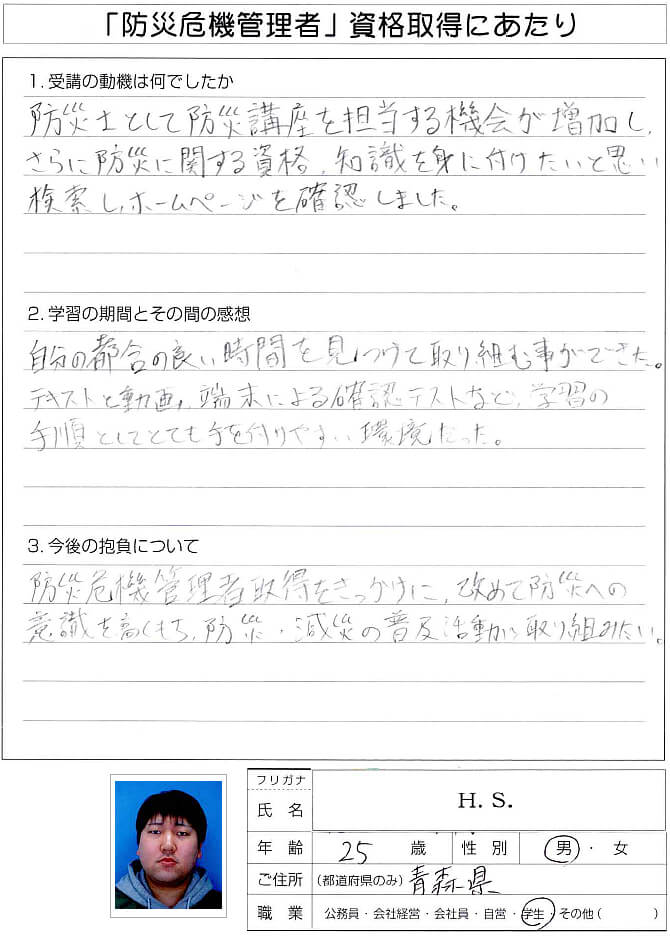 「防災危機管理者」資格取得にあたり
1. 受講の動機は何でしたか
防災士として防災講座を担当する機会が増加し、
さらに防災に関する資格、知識を身に付けたいと思い
検索し、ホームページを確認しました。
2. 学習の期間とその間の感想
自分の都合の良い時間を見つけて取り組む事ができた。
テキストと動画、端末による確認テストなど、学習の
手順としてとても手を付けやすい環境だった。
3. 今後の抱負について
防災危機管理者取得をきっかけに、改めて防災への
意識を高くもち、防災・減災の普及活動に取り組みたい。
フリガナ
氏名 H. S.
年齢 25 歳 性別 男・女
ご住所 (都道府県のみ) 青森県
職業 公務員・会社経営・会社員・自営・学生・その他( )